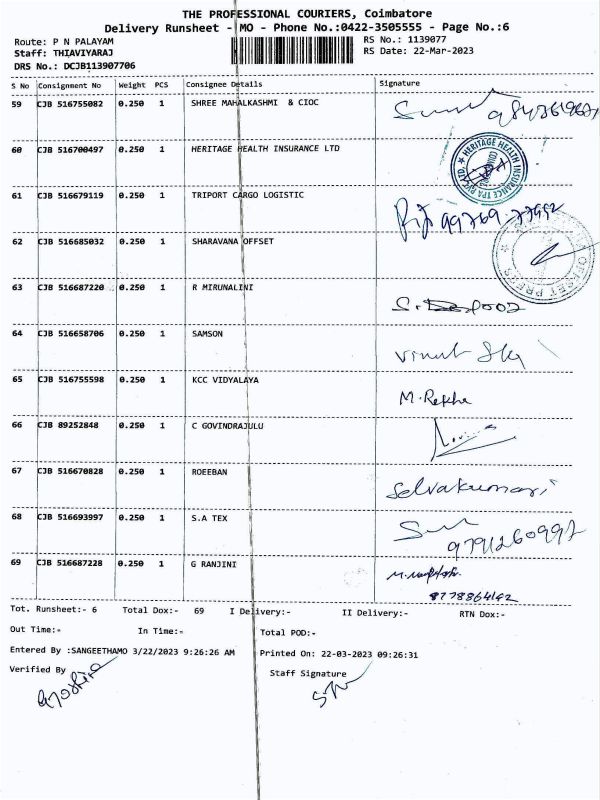 THE PROFESSIONAL COURIERS, Coimbatore
Delivery Runsheet - MO - Phone No.:0422-3505555 - Page No.:6
Route: P N PALAYAM
RS No.: 1139077
Staff: THIAVIYARAJ
RS Date: 22-Mar-2023
DRS No.: DCJB113907706
S No Consignment No Weight PCS Consignee Details Signature
59 CJB 516755082 0.250 1 SHREE MAHALKASHMI & CIOC
60 CJB 516700497 0.250 1 HERITAGE HEALTH INSURANCE LTD
HERITAGE HEALTH INSURANCE TPA PVT LTD.
61 CJB 516679119 0.250 1 TRIPORT CARGO LOGISTIC
62 CJB 516685032 0.250 1 SHARAVANA OFFSET
OFFSET PRESS
63 CJB 516687220 0.250 1 R MIRUNALINI
64 CJB 516658706 0.250 1 SAMSON
65 CJB 516755598 0.250 1 KCC VIDYALAYA M. Rekha
66 CJB 89252848 0.250 1 C GOVINDRAJULU
67 CJB 516670828 0.250 1 ROEEBAN Selvakumari
68 CJB 516693997 0.250 1 S.A TEX
9791260992
69 CJB 516687228 0.250 1 G RANJINI
8778864142
Tot. Runsheet:- 6 Total Dox:- 69 I Delivery:- II Delivery:- RTN Dox:-
Out Time:- In Time:- Total POD:-
Entered By :SANGEETHAMO 3/22/2023 9:26:26 AM Printed On: 22-03-2023 09:26:31
Verified By Staff Signature